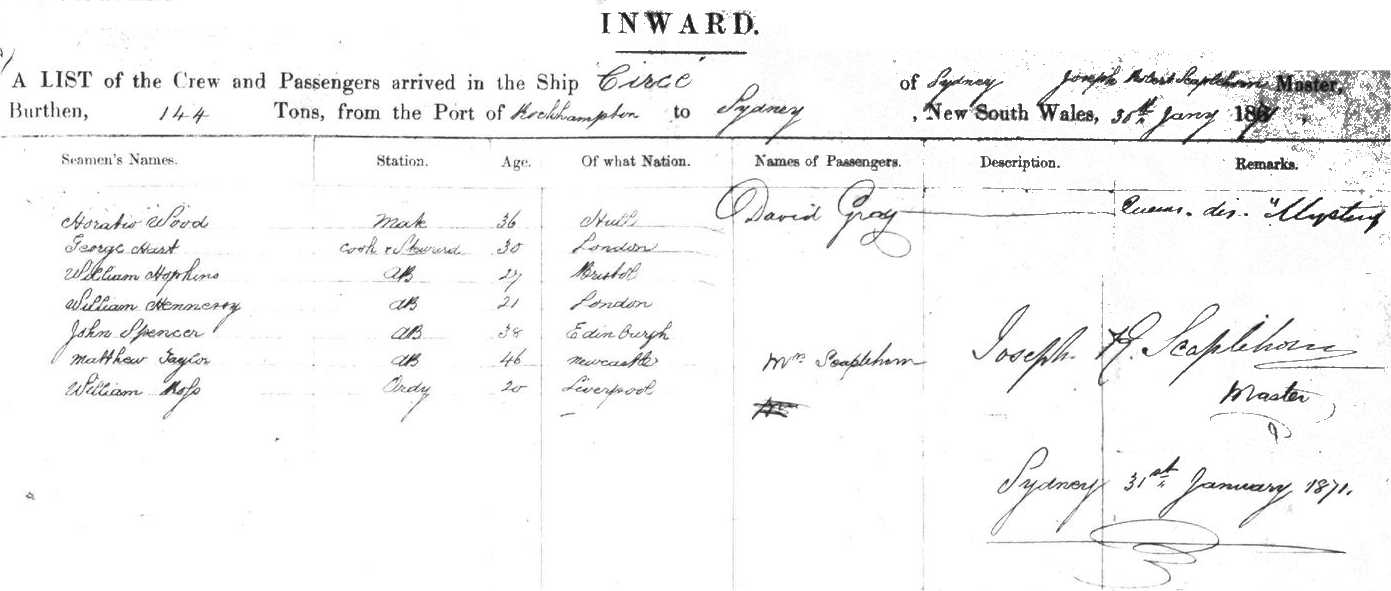 INWARD.
A LIST of the Crew and Passengers arrived in the Ship Circe of Sydney Joseph Robert Scaplehorn Master,
Burthen, 144 Tons, from the Port of Rockhampton to Sydney , New South Wales, 30th Jany 1871 .
Seamen's Names. Station. Age. Of what Nation. Names of Passengers. Description. Remarks.
David Gray
Horatio Wood Mate 36 Hull
George Hart Cook & Steward 30 London
William Hopkins AB 27 Bristol
William Hennessy AB 21 London
John Spencer AB 38 Edinburgh
Matthew Taylor AB 46 Newcastle Mrs Scaplehorn Joseph R. Scaplehorn
William Ross Ordy 20 Liverpool Master
Sydney 31st January 1871.